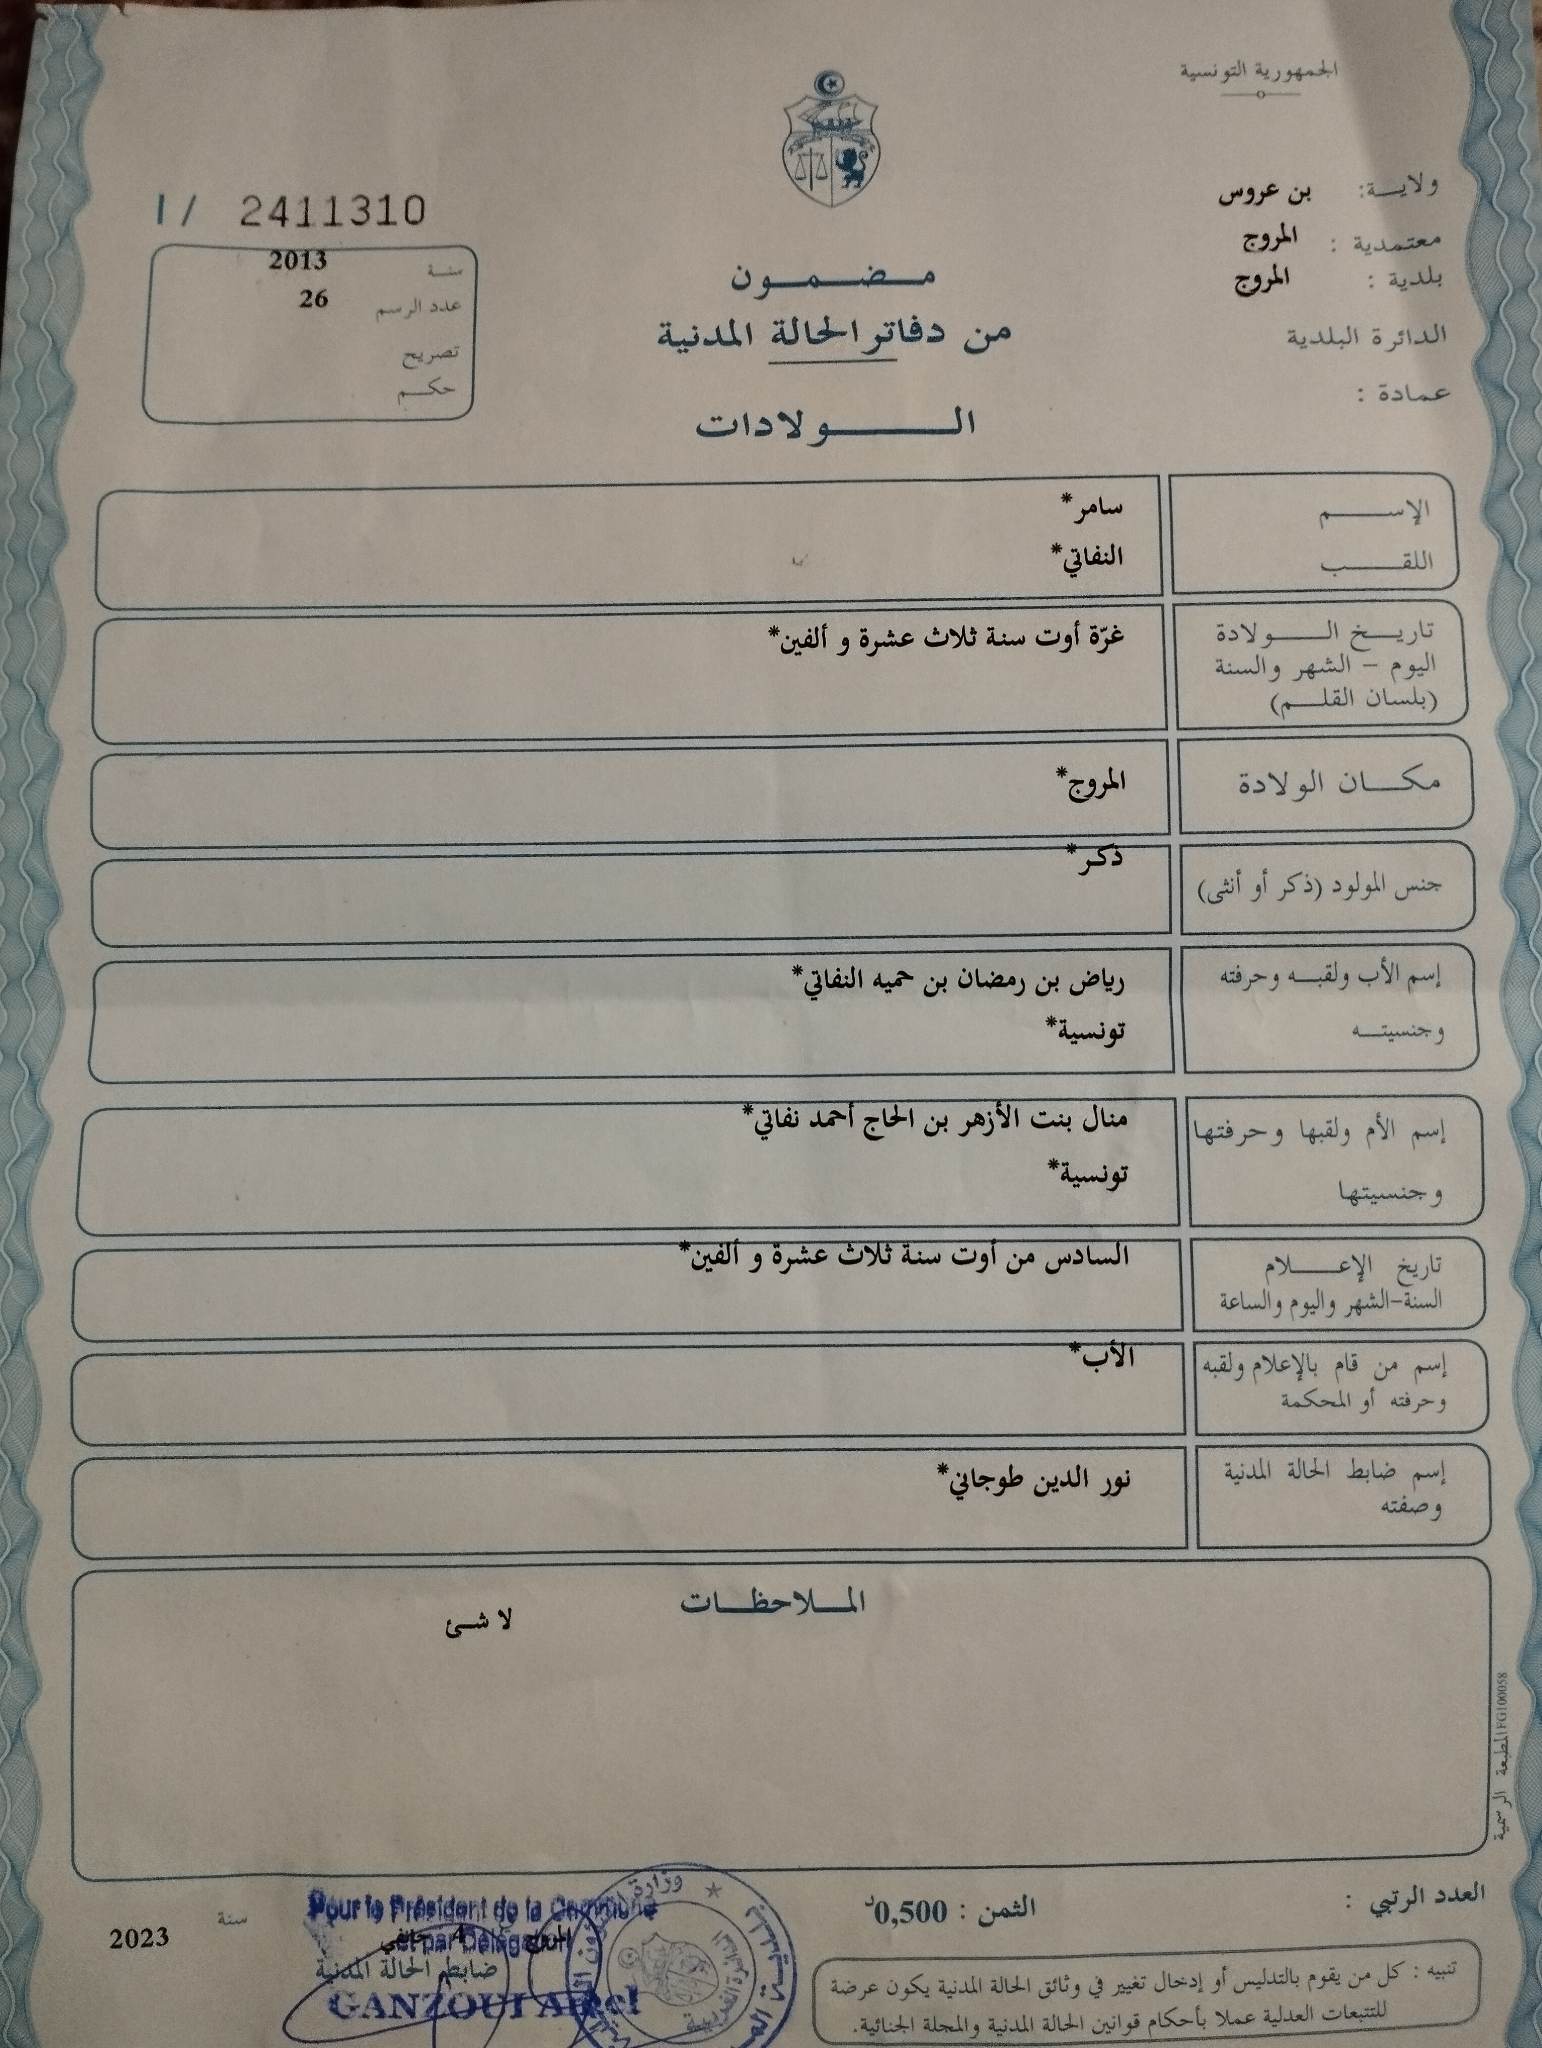 الجمهورية التونسية
ولايــة: بن عروس
معتمدية : المروج
بلدية : المروج
الدائرة البلدية
عمادة :
I / 2411310
سنـة 2013
عدد الرسم 26
تصريح
حكـم
مـضـمـون
من دفاتر الحالة المدنية
الــولادات
الإســـم سامر*
اللقـــب النفاتي*
تاريـخ الـــولادة غرّة أوت سنة ثلاث عشرة و ألفين*
اليوم - الشهر والسنة
(بلسان القلـم)
مكـان الولادة المروج*
جنس المولود (ذكر أو أنثى) ذكر*
إسم الأب ولقبـه وحرفته رياض بن رمضان بن حميه النفاتي*
وجنسيتـه تونسية*
إسم الأم ولقبها وحرفتها منال بنت الأزهر بن الحاج أحمد نفاتي*
وجنسيتها تونسية*
تاريخ الإعـــلام السادس من أوت سنة ثلاث عشرة و ألفين*
السنة-الشهر واليوم والساعة
إسم من قام بالإعلام ولقبه الأب*
وحرفته أو المحكمة
إسم ضابط الحالة المدنية نور الدين طوجاني*
وصفته
الملاحظـات
لا شئ
المطبعة الرسمية FG100058
العدد الرتبي :
الثمن : 0,500د
سنة 2023
Pour le Président de la Commune
et par Délégation
المروج 4 جانفي
ضابط الحالة المدنية
GANZOUI
تنبيه : كل من يقوم بالتدليس أو إدخال تغيير في وثائق الحالة المدنية يكون عرضة
للتتبعات العدلية عملا بأحكام قوانين الحالة المدنية والمجلة الجنائية.